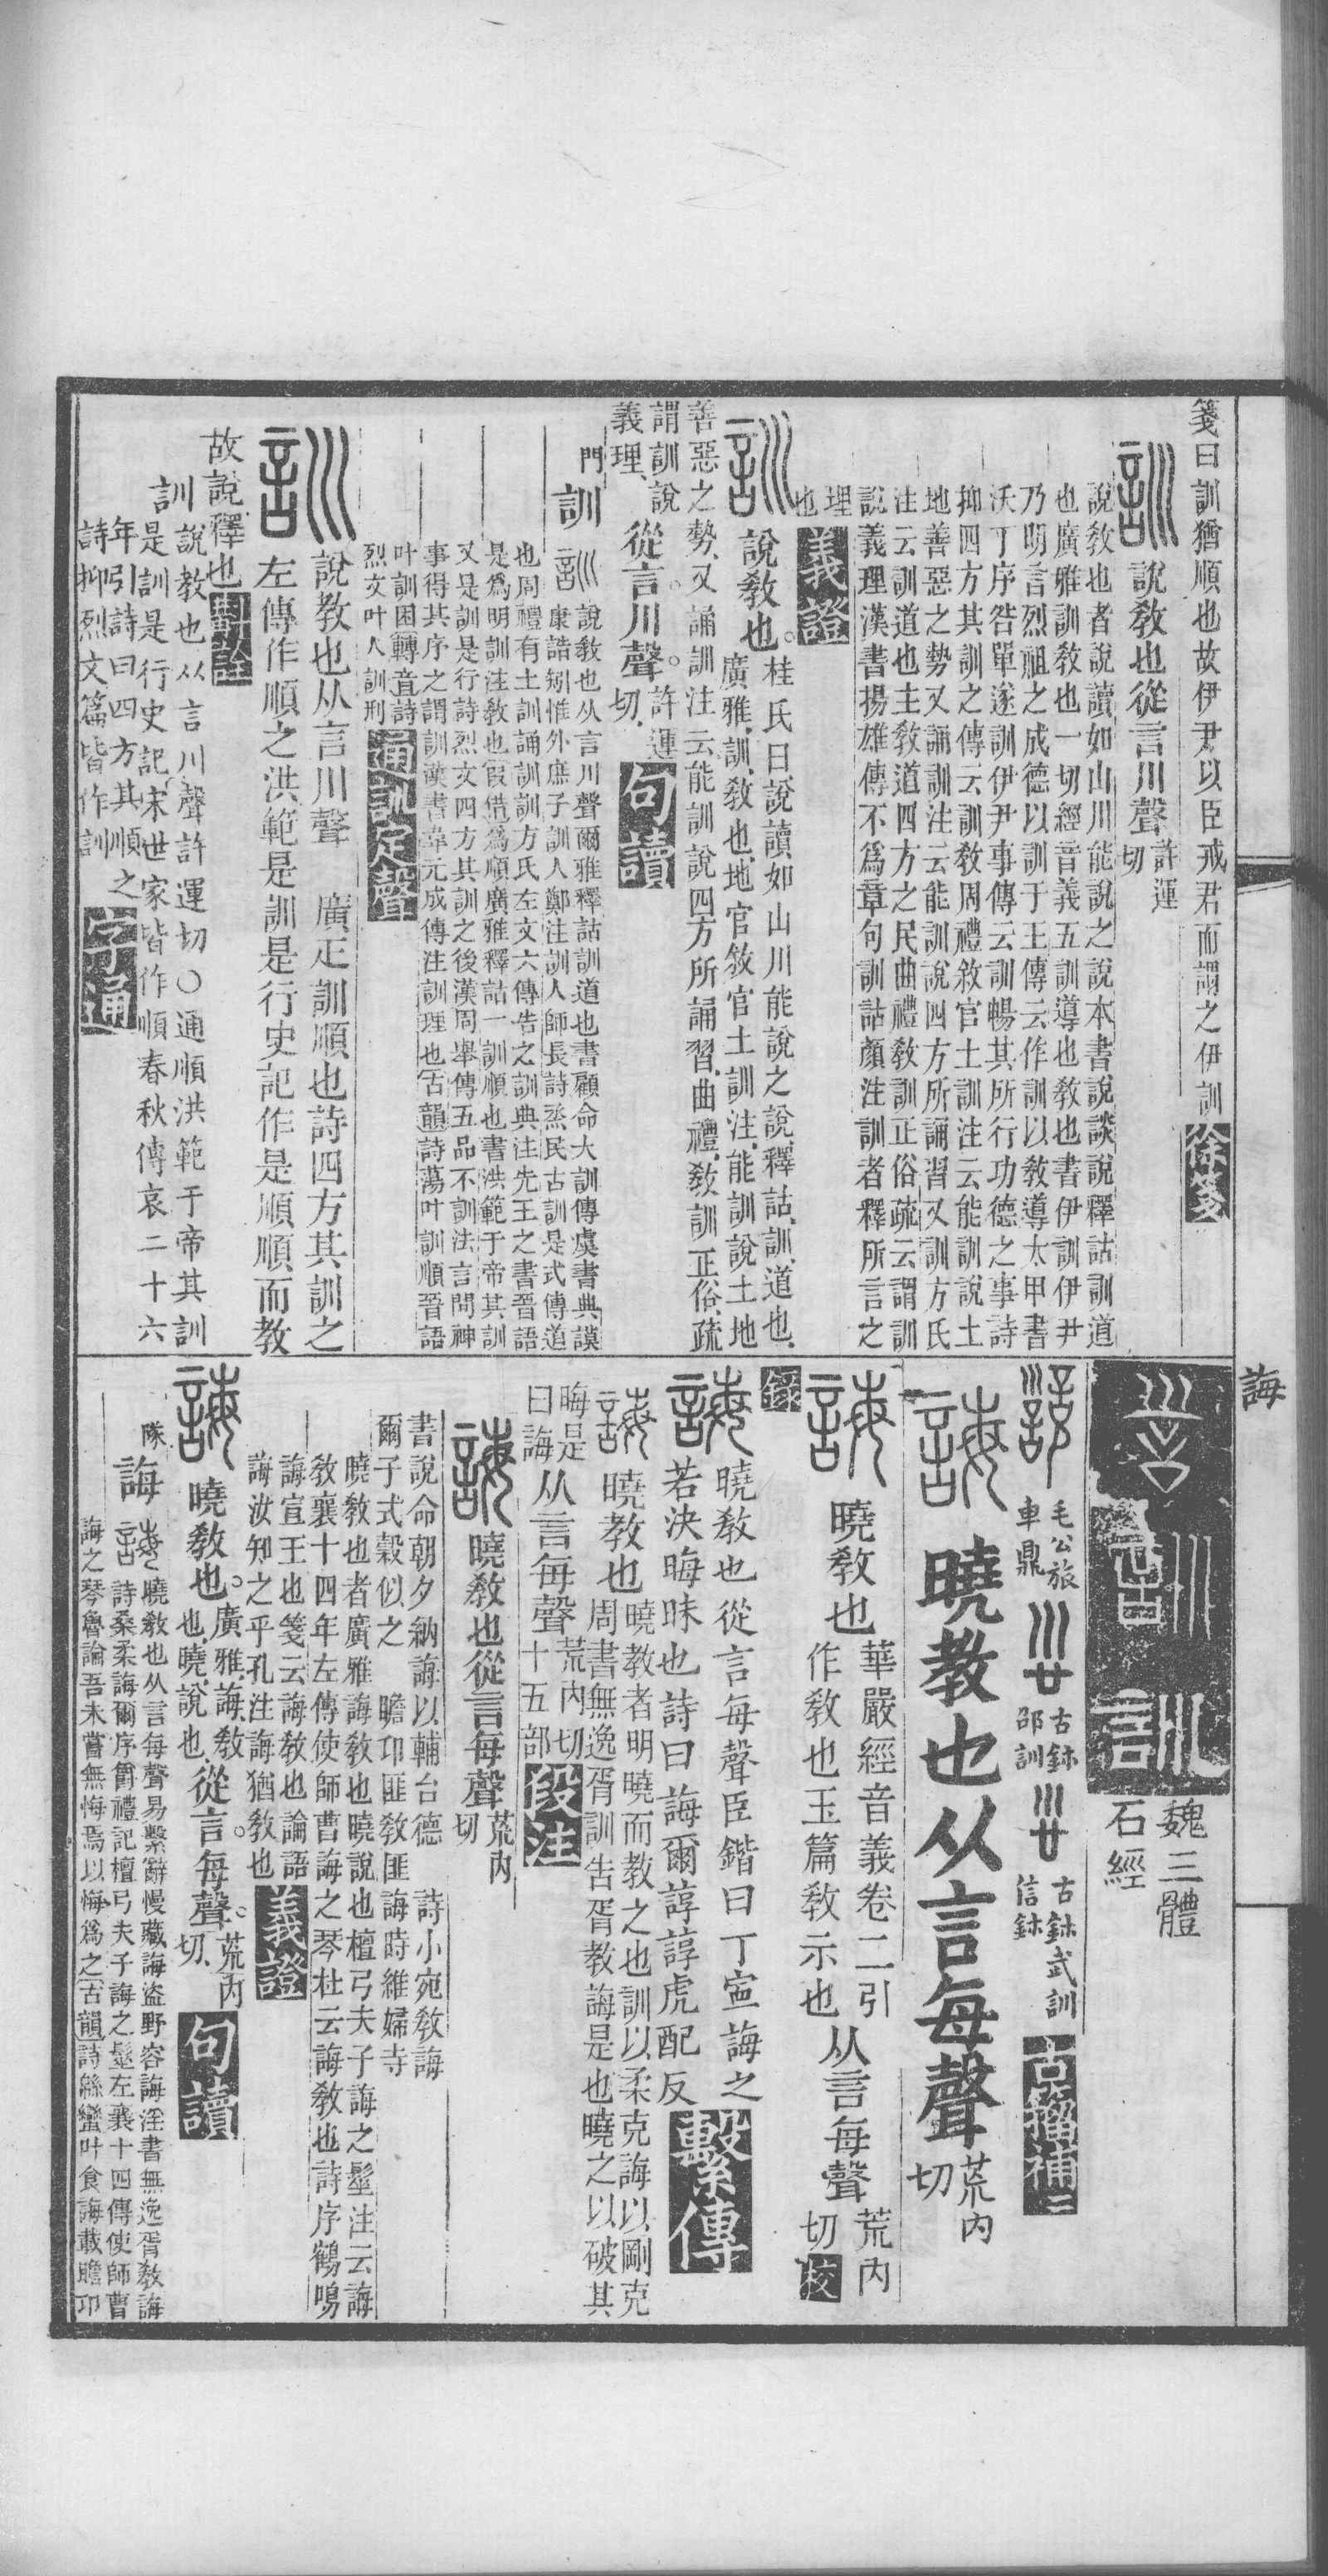 箋曰訓猶順也故伊尹以臣戒君而謂之伊訓徐箋
說敎也從言川聲許運切
說敎也者說讀如山川能說之說本書說談說釋詁訓道
也廣雅訓敎也一切經音義五訓導也敎也書伊訓伊尹
乃明言烈祖之成德以訓于王傳云作訓以敎導太甲書
沃丁序咎單遂訓伊尹事傳云訓暢其所行功德之事詩
抑四方其訓之傳云訓敎周禮敘官土訓注云能訓說土
地善惡之勢又誦訓注云能訓說四方所誦習又訓方氏
注云訓道也主敎道四方之民曲禮敎訓正俗疏云謂訓
說義理漢書揚雄傳不爲章句訓詁顏注訓者釋所言之
理也義證
說敎也。桂氏曰說讀如山川能說之說釋詁訓道也
廣雅訓敎也地官敘官土訓注能訓說土地
善惡之勢又誦訓注云能訓說四方所誦習曲禮敎訓正俗疏
謂訓說義理從言。川聲。許運切句讀
門
訓
說敎也从言川聲爾雅釋詁訓道也書顧命大訓傳虞書典謨
康誥矧惟外庶子訓人鄭注訓人師長詩烝民古訓是式傳道
也周禮有土訓誦訓訓方氏左文六傳告之訓典注先王之書晉語
是爲明訓注敎也叚借爲順廣雅釋詁一訓順也書洪範于帝其訓
又是訓是行詩烈文四方其訓之後漢周舉傳五品不訓法言問神
事得其序之謂訓漢書韋元成傳注訓理也古韻詩蕩叶訓順晉語
叶訓囷轉音詩
烈文叶人訓刑通訓定聲
說教也从言川聲 廣疋訓順也詩四方其訓之
左傳作順之洪範是訓是行史記作是順順而教
故說釋也斠詮
訓
說教也从言川聲許運切○通順洪範于帝其訓
是訓是行史記宋世家皆作順春秋傳哀二十六
年引詩曰四方其順之
詩抑烈文篇皆作訓字通
誨
魏三體
石經
毛公旅
車鼎
古鉥
邵訓
古鉥武訓
信鉥
古籀補二
曉教也从言每聲荒內切
曉敎也
華嚴經音義卷二引
作敎也玉篇敎示也
从言每聲荒內切校錄
曉敎也從言每聲臣鍇曰丁寍誨之
若決晦昧也詩曰誨爾諄諄虎配反繫傳
曉教也
曉教者明曉而教之也訓以柔克誨以剛克
周書無逸胥訓告胥教誨是也曉之以破其
晦是曰誨从言每聲荒內切十五部段注
曉敎也從言每聲荒內切
書說命朝夕納誨以輔台德 詩小宛敎誨
爾子式穀似之 瞻卬匪敎匪誨時維婦寺
曉敎也者廣雅誨敎也曉說也檀弓夫子誨之髽注云誨
敎襄十四年左傳使師曹誨之琴杜云誨敎也詩序鶴鳴
誨宣王也箋云誨敎也論語
誨汝知之乎孔注誨猶敎也義證
曉敎也。廣雅誨敎也曉說也從言。每聲。荒內切句讀
隊
誨
曉敎也从言每聲易繫辭慢藏誨盜野容誨淫書無逸胥敎誨
詩桑柔誨爾序爵禮記檀弓夫子誨之髽左襄十四傳使師曹
誨之琴魯論吾未嘗無悔焉以悔爲之古韻詩緜蠻叶食誨載瞻卬